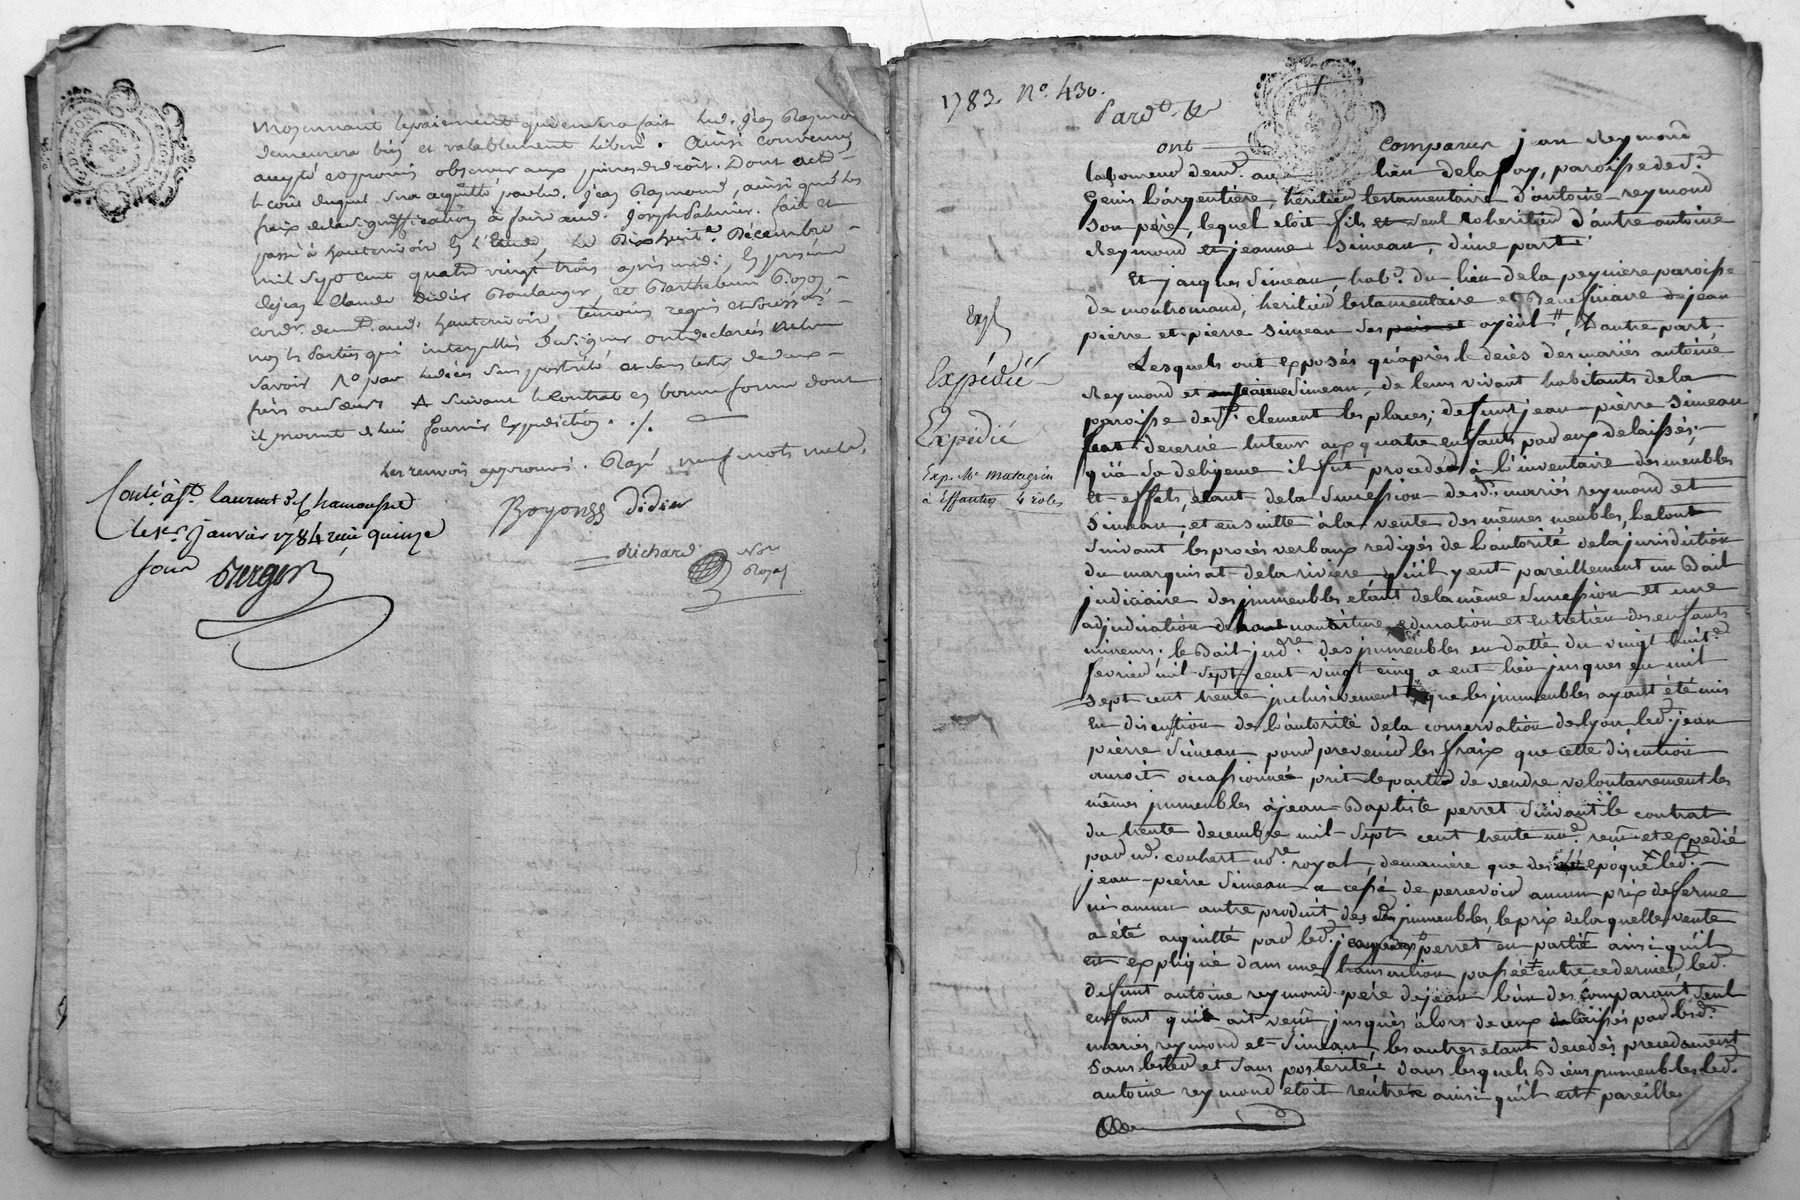 moyennant le paiement qui en sera fait led. Jean Raymond
demeurera bien et valablement liberé. Ainsi convenu
accepté et promis observer aux peines de droit. Dont acte
le coût duquel sera acquitté par led. Jean Raymond, ainsi que les
frais de la signiffication à faire aud. Joseph
passé à hauterivoire en l'Etude, le Dixhuit Décembre
mil sept cent quatre vingt trois après midi, En présence
de Jean Claude Didier Boulanger, et Barthelemi
cord. demt. aud. hauterivoire témoins requis et soussignés
non les Parties qui interpellées de signer ont declarées ne le
savoir
frères ou sœurs A suivant le Contrat en bonne forme dont
il promet de lui fournir Expedition. ./.
Les renvois approuvés. Rayé neuf mots nuls.
Conlé à St. laurent de Chamousset
le 1er. Janvier 1784 reçu quinze
sous
didier
Richard Nre
Royal
1783. N°. 430.
Pard. &
ont comparus jean Reymond
laboureur demt. au lieu de la Foy, paroisse de St.
Genis L'argentière, héritier testamentaire d'antoine reymond
son père, lequel etoit fils et seul coheritier d'autre antoine
Reymond et jeanne Simean, d'une part
Et jacques Simean, habt. du lieu de la peyniere paroisse
de montromand, heritier testamentaire et Beneficiaire de jean
pierre et pierre Simean ses pere et ayeul, D'autre part
Exp
Lesquels ont exposés qu'après le decès des mariés antoine
Expédié
Reymond et jeanne Simean, de leurs vivant habitants de la
paroisse de St. clement les places; defunt jean pièrre Simean
Expédié
fut decerné tuteur aux quatre enfants par eux delaissés;
qu'à sa deligence il fut procedé à l'inventaire des meubles
Exp. Me Matagrin
Et effets, etant de la Succession desd. mariés reymond et
à Effantin 4 rôles
Simean, et ensuitte à la vente des mêmes meubles, le tout
Suivant les procès verbaux redigés de l'autorité de la jurisdiction
du marquisat de la riviere, qu'il y eut pareillement un Bail
judiciaire des immeubles etant de la même Succession et une
adjudication de la nourriture education et entretien des enfants
mineurs; le Bail judre. des immeubles en datte du vingt huit
fevrier mil Sept cent vingt cinq a eut lieu jusques en mil
Sept cent trente inclusivement que les immeubles ayant été mis
En discution de l'autorité de la conservation de lyon led. jean
pièrre Simean pour prevenir les fraix que cette discution
auroit occasionnée prit le partie de vendre volontairement les
mêmes immeubles à jean Baptiste perret Suivant le contrat
du trente decembre mil Sept cent trente un reçu et expedié
par Me. couhert nore. royal, demanière que dès epoque led.
jean pièrre Simean a cessé de percevoir aucun prix de ferme
ni aucun autre produit des dits immeubles, le prix de laquelle vente
a été acquitté par led. perret en partie ainsi qu'il
est expliqué dans une transaction passée entre ce dernier, led.
defunt antoine reymond père de jean l'un des comparant, Seul
enfant qu'il ait vecu jusquès alors de ceux delaissés par lesd.
mariés reymond et Simean, les autres etant decedés precedament
Sans tester et Sans posterité dans lesquels Biens immeubles led.
antoine reymond etoit rentré ainsi qu'il est pareille